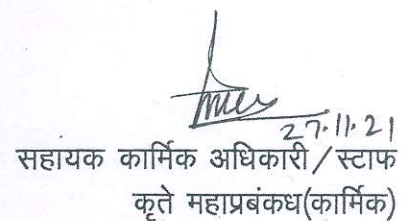 27.11.21
सहायक कार्मिक अधिकारी/स्टाफ
कृते महाप्रबंकध(कार्मिक)